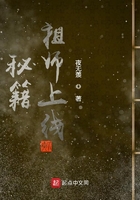 祖师上线
秘籍
著
起点中文网